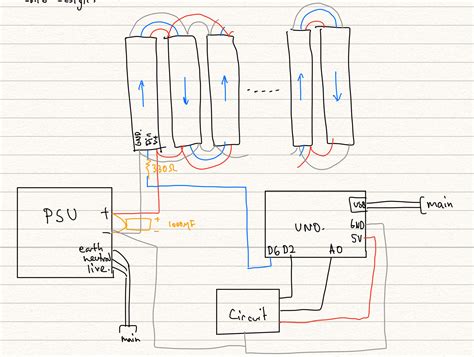 GND.
Din
5V
330Ω
PSU
+
-
+
1000μF
earth
neutral
live.
main
UNO.
USB
GND
5V
D6 D2
A0
main
Circuit